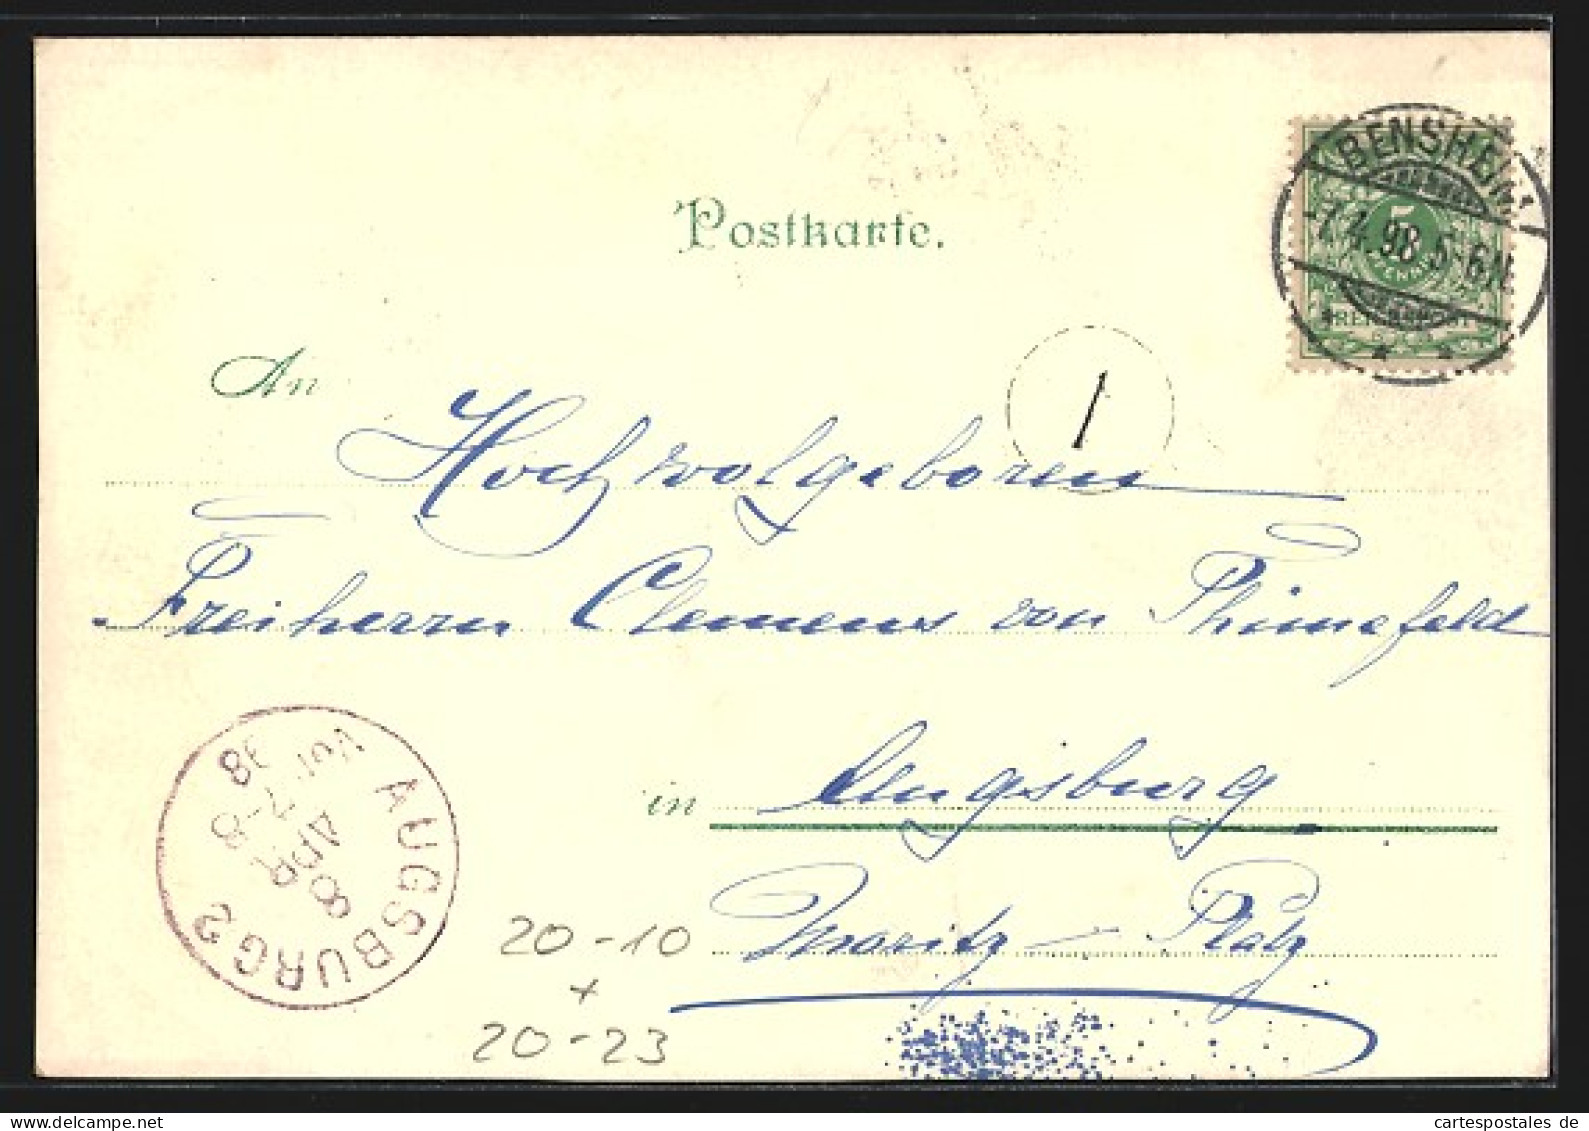 Postkarte.
BENSHEIM
-7.4.98 5-6N.
5
PFENNIG
REICHSPOST
An
1
Hochwolgeboren
Freiherrn Clemens von Thünefeld
in Augsburg
Moritz-Platz
AUGSBURG 2
8 APR
7-8
Vor
98
20-10
+
20-23
cartespostales de